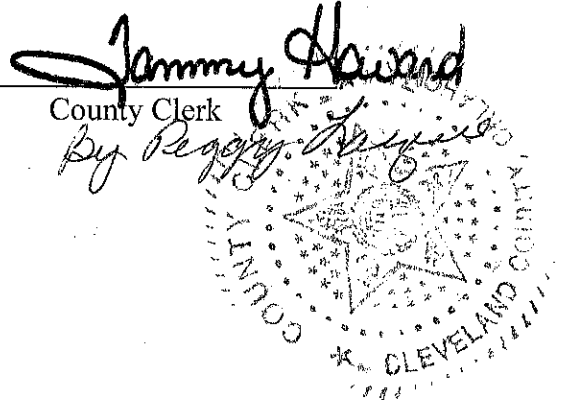 Tammy Howard
County Clerk
By Peggy
COUNTY CLERK
CLEVELAND COUNTY,